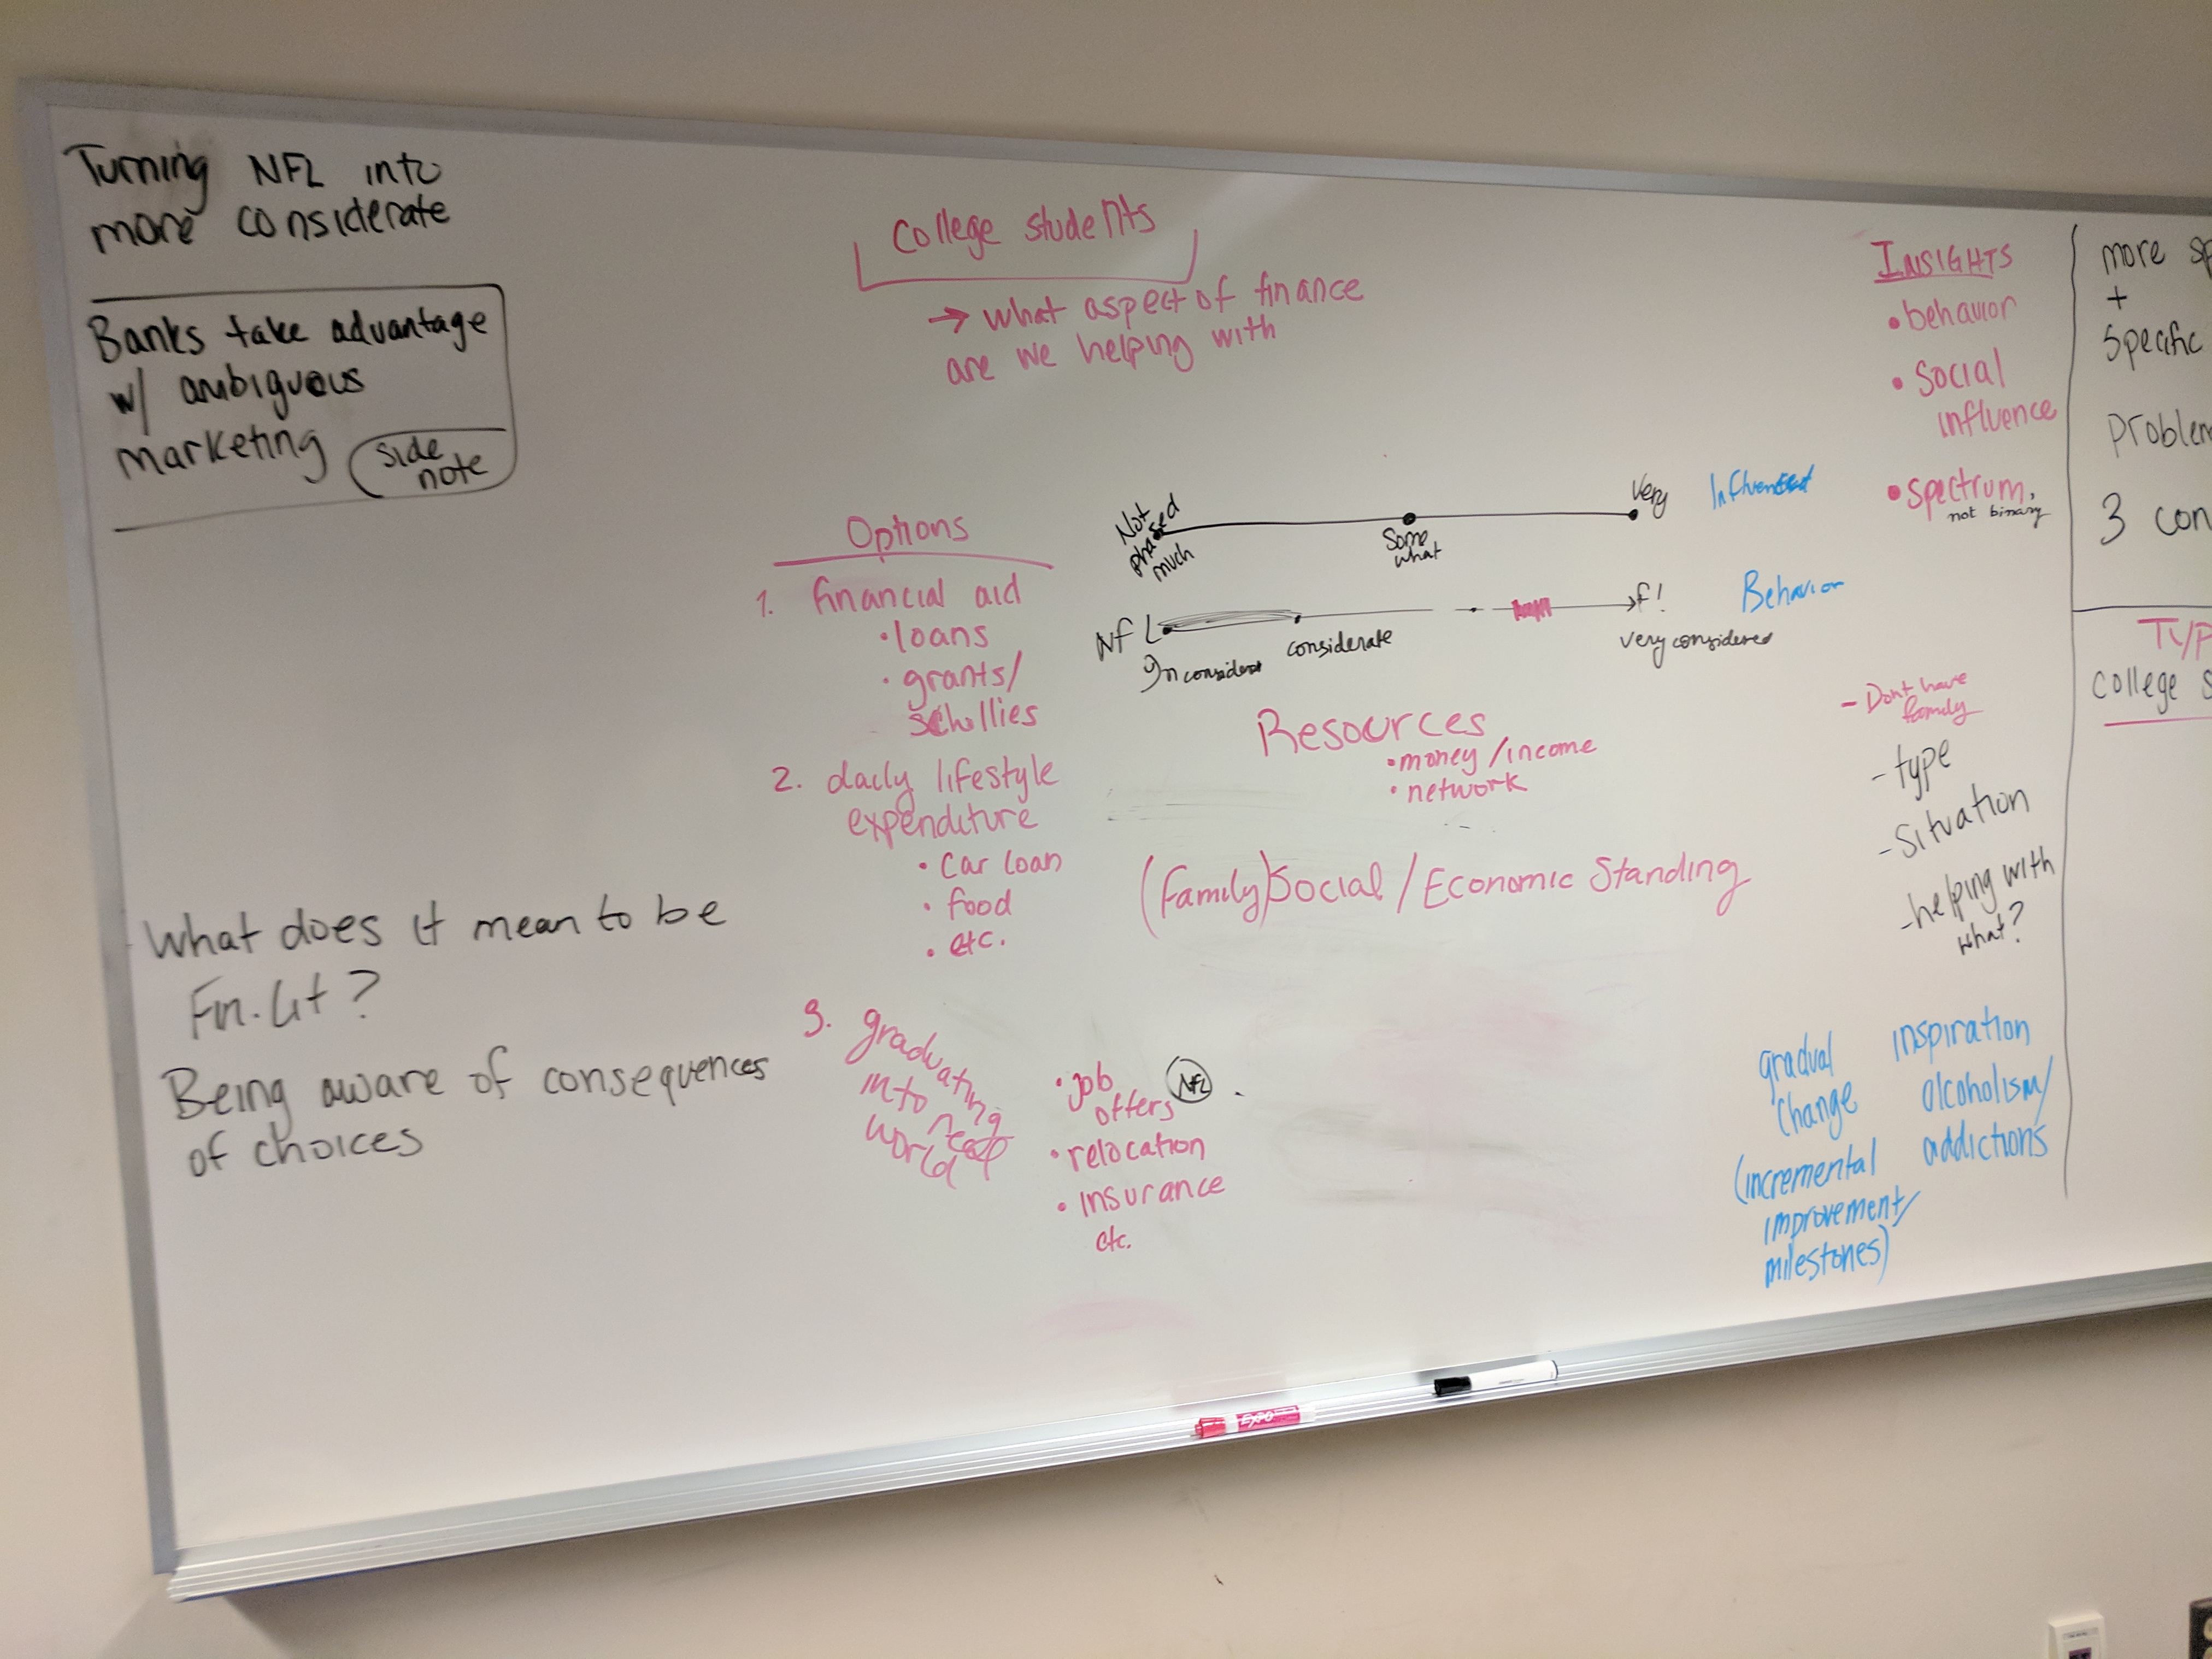 Turning NFL into
more considerate
Banks take advantage
w/ ambiguous
marketing
side
note
What does it mean to be
Fin. Lit?
Being aware of consequences
of choices
College students
→ what aspect of finance
are we helping with
Options
1. financial aid
• loans
• grants/
schollies
2. daily lifestyle
expenditure
• car loan
• food
• etc.
3. graduating
into real
world
• job
offers
NFL
• relocation
• insurance
etc.
Not
phased
much
Some
what
Very
Influenced
NFL
Inconsiderat
considerate
f!
very considered
Behavior
Resources
• money/income
• network
(Family) Social / Economic Standing
INSIGHTS
• behavior
• Social
influence
• spectrum,
not binary
- Dont have
family
- type
- situation
- helping with
what?
gradual
change
(incremental
improvement/
milestones)
inspiration
alcoholism/
addictions
more sp
+
Specific
Problem
3 con
TYP
College s
EXPO